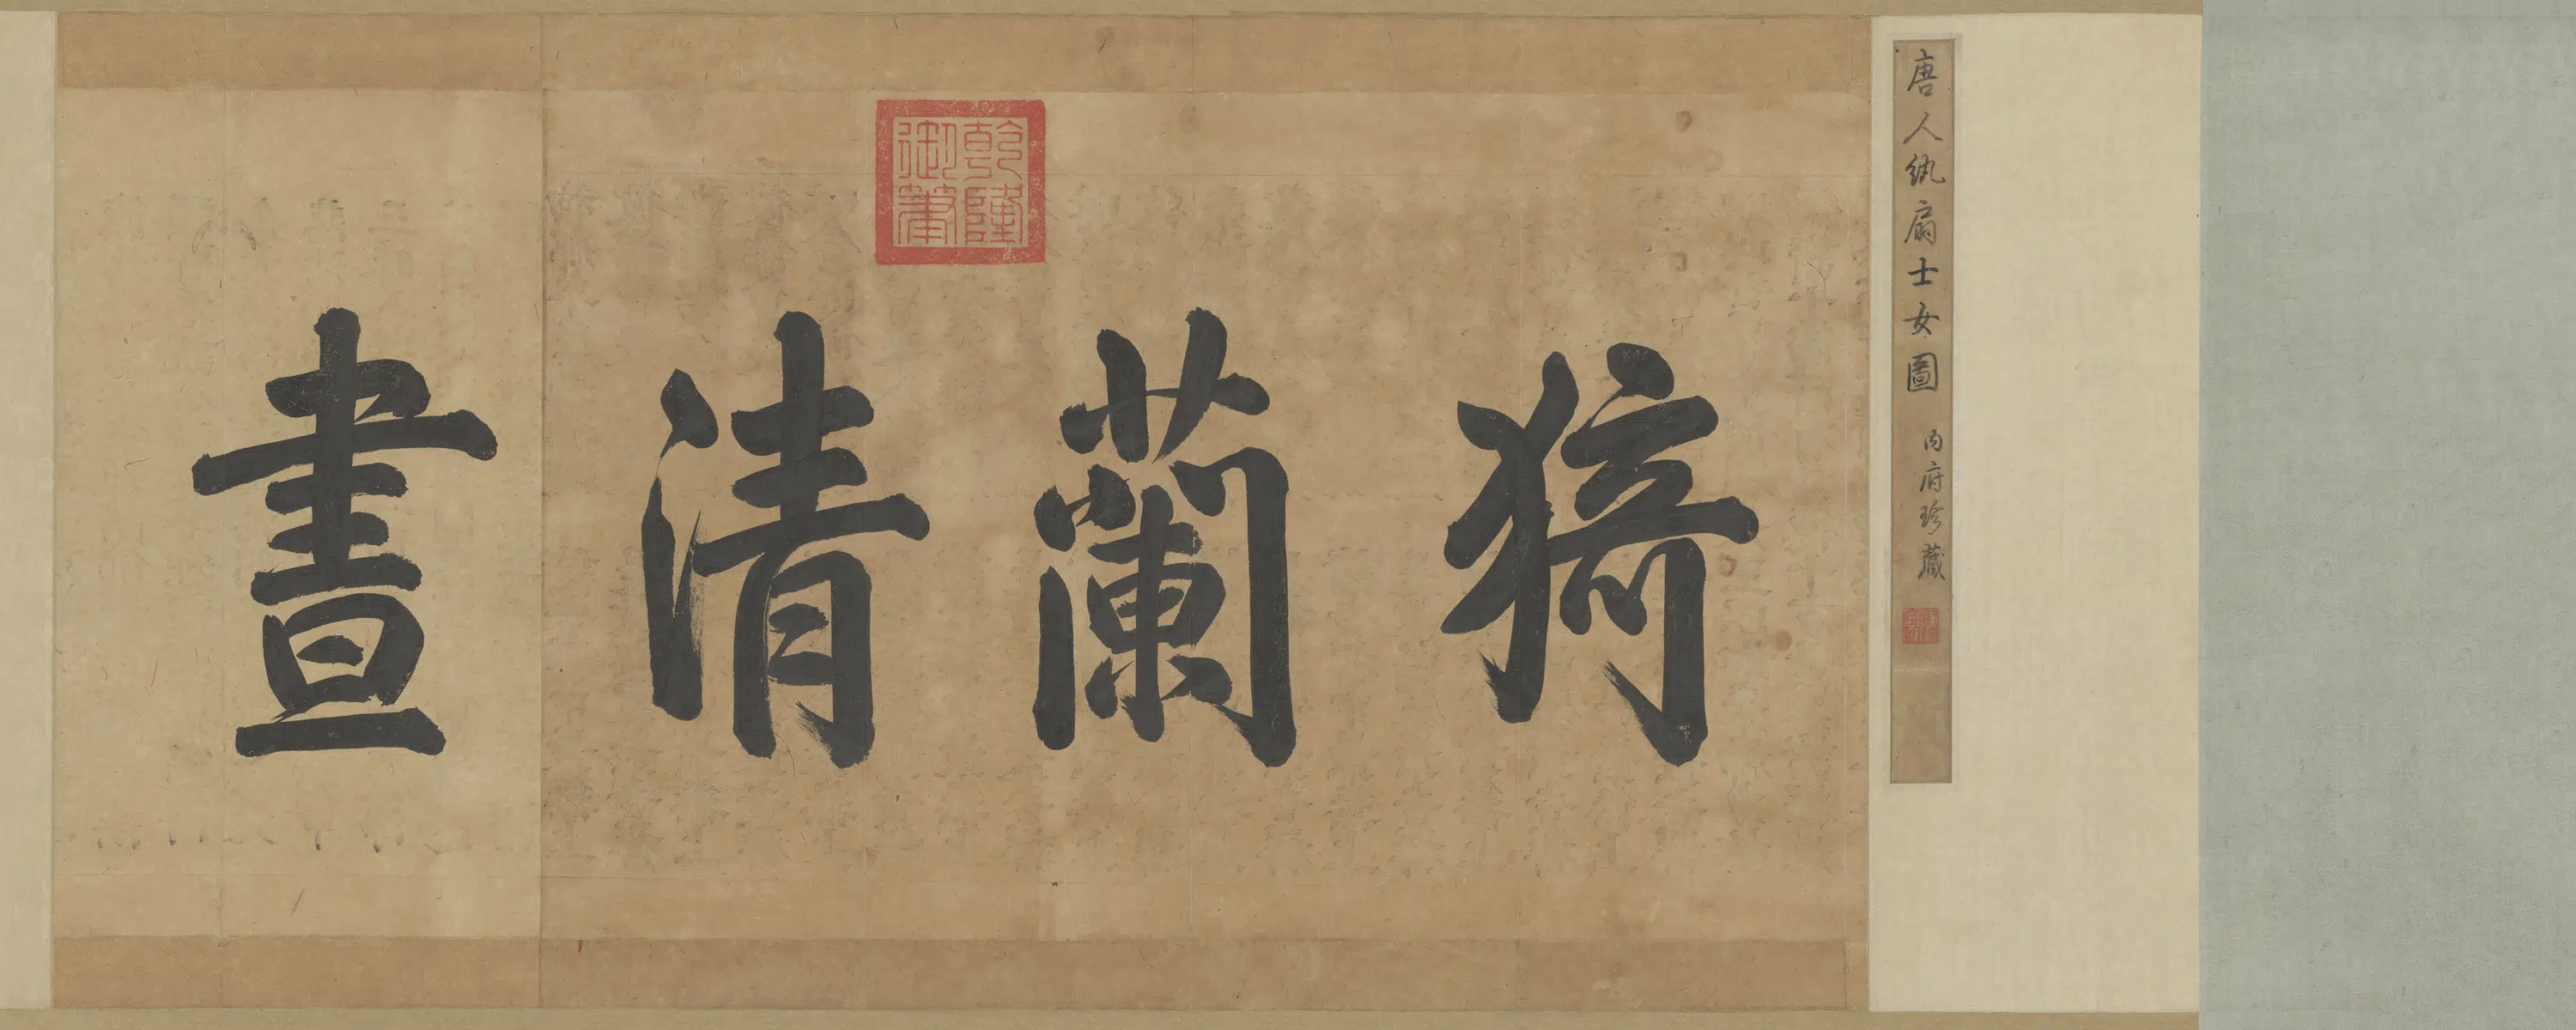 唐人紈扇士女圖
內府珍藏
猗蘭清晝
乾隆
御筆